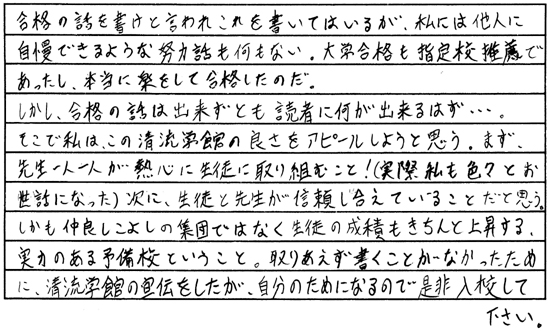 合格の話を書けと言われこれを書いてはいるが、私には他人に
自慢できるような努力話も何もない。大学合格も指定校推薦で
あったし、本当に楽をして合格したのだ。
しかし、合格の話は出来ずとも読者に何が出来るはず…。
そこで私は、この清流学館の良さをアピールしようと思う。まず、
先生一人一人が熱心に生徒に取り組むこと!(実際私も色々とお
世話になった)次に、生徒と先生が信頼し合えていることだと思う。
しかも仲良しこよしの集団ではなく生徒の成績もきちんと上昇する、
実力のある予備校ということ。取りあえず書くことがなかったため
に、清流学館の宣伝をしたが、自分のためになるので是非入校して
下さい。